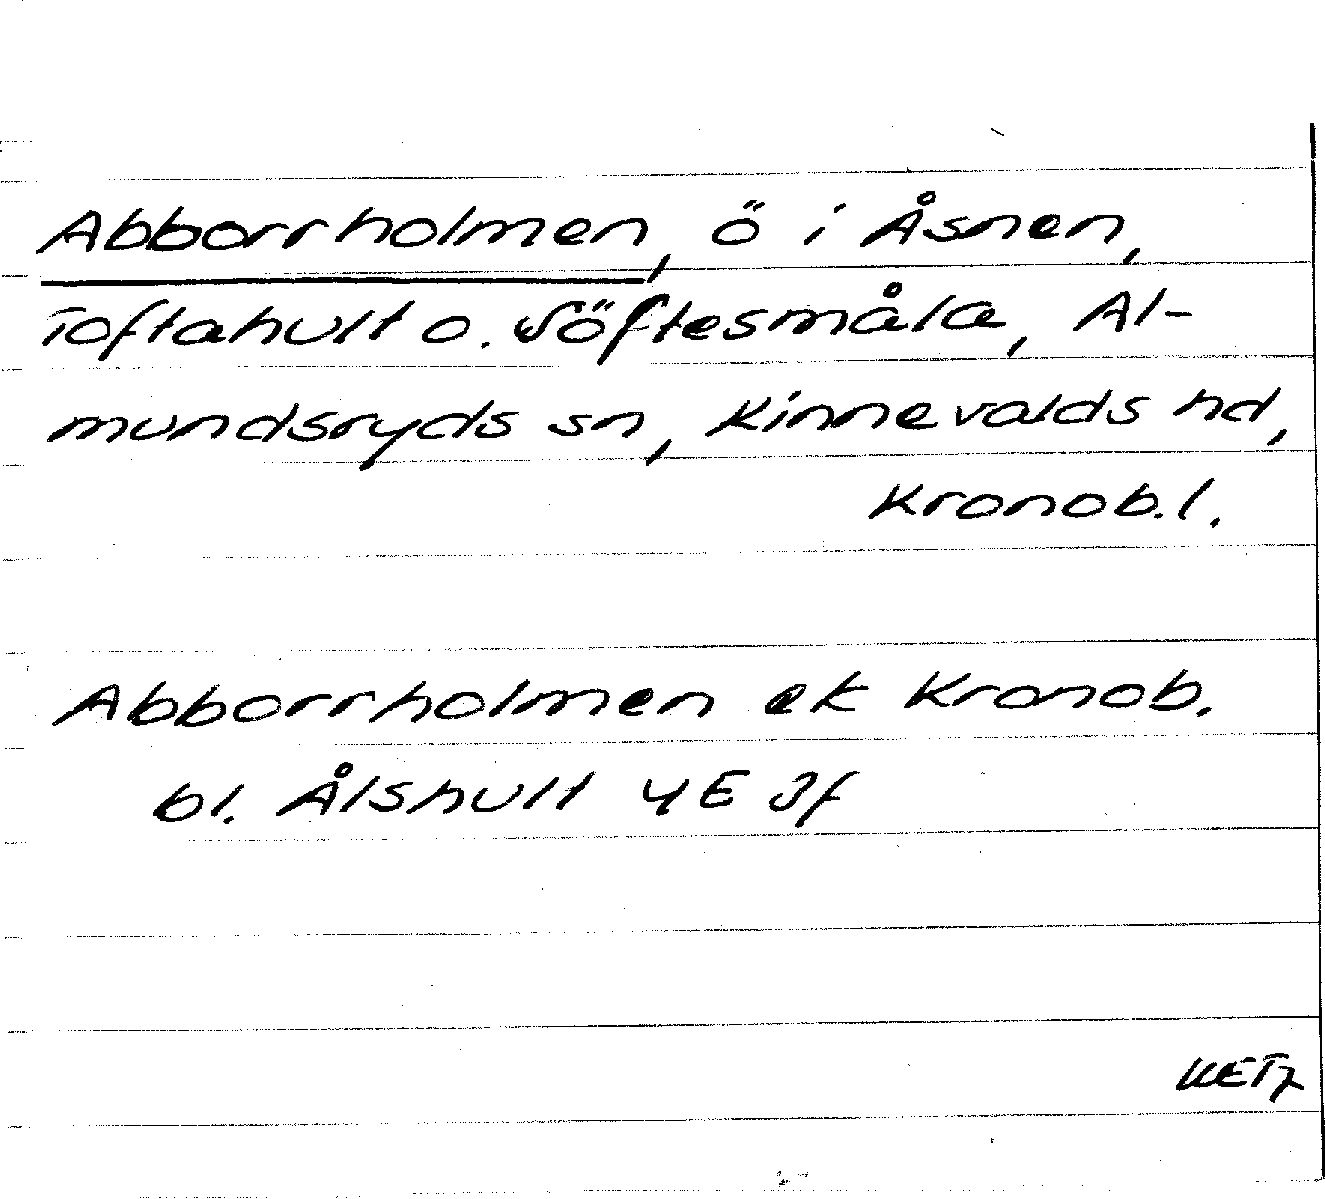 Abborrholmen, ö i Åsnen,
Toftahult o. Söftesmåla, Al-
mundsryds sn, Kinnevalds hd,
Kronob. l.
Abborrholmen ek Kronob.
bl. Ålshult 4E Jf